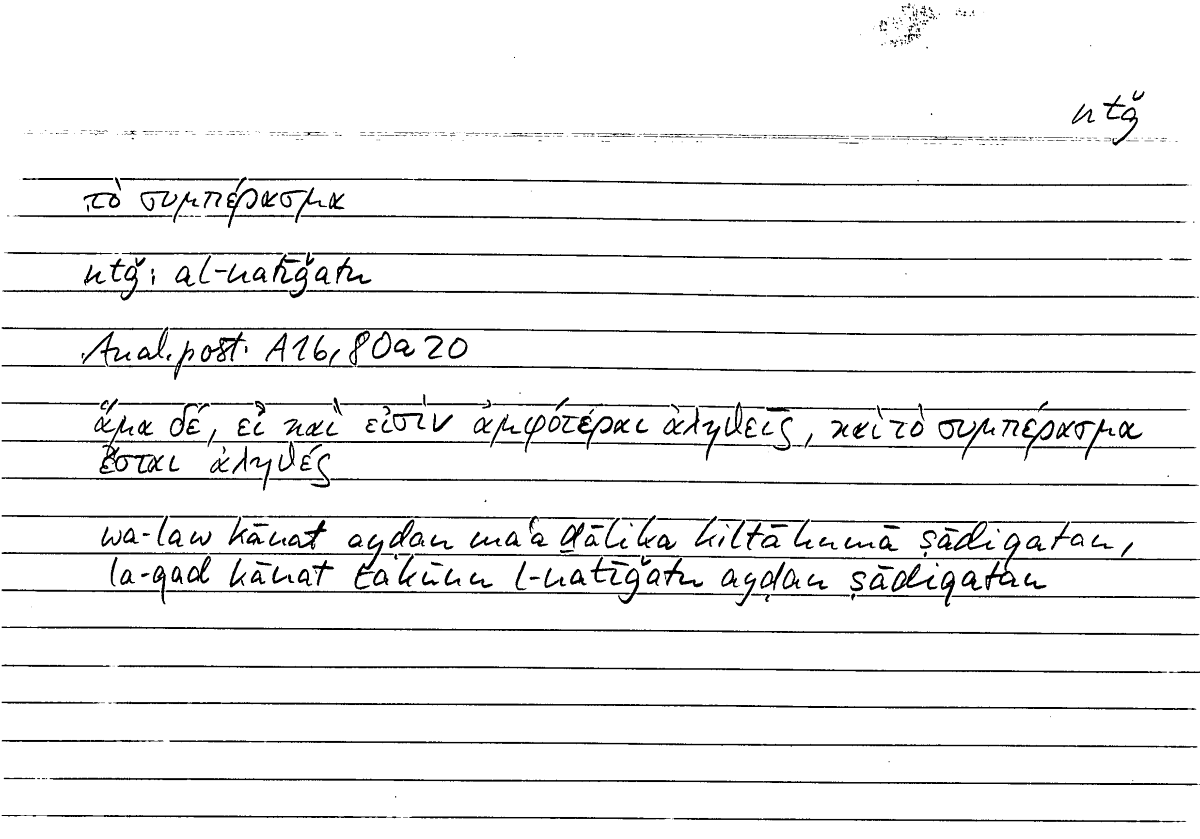 ntǧ
τὸ συμπέρασμα
ntǧ: al-natīǧatu
Anal. post. A16, 80a20
ἅμα δέ, εἰ καὶ εἰσὶν ἀμφότεραι ἀληθεῖς, καὶ τὸ συμπέρασμα
ἔσται ἀληθές
wa-law kānat ayḍan maʿa ḏālika kiltāhumā ṣādiqatan,
la-qad kānat takūnu l-natīǧatu ayḍan ṣādiqatan